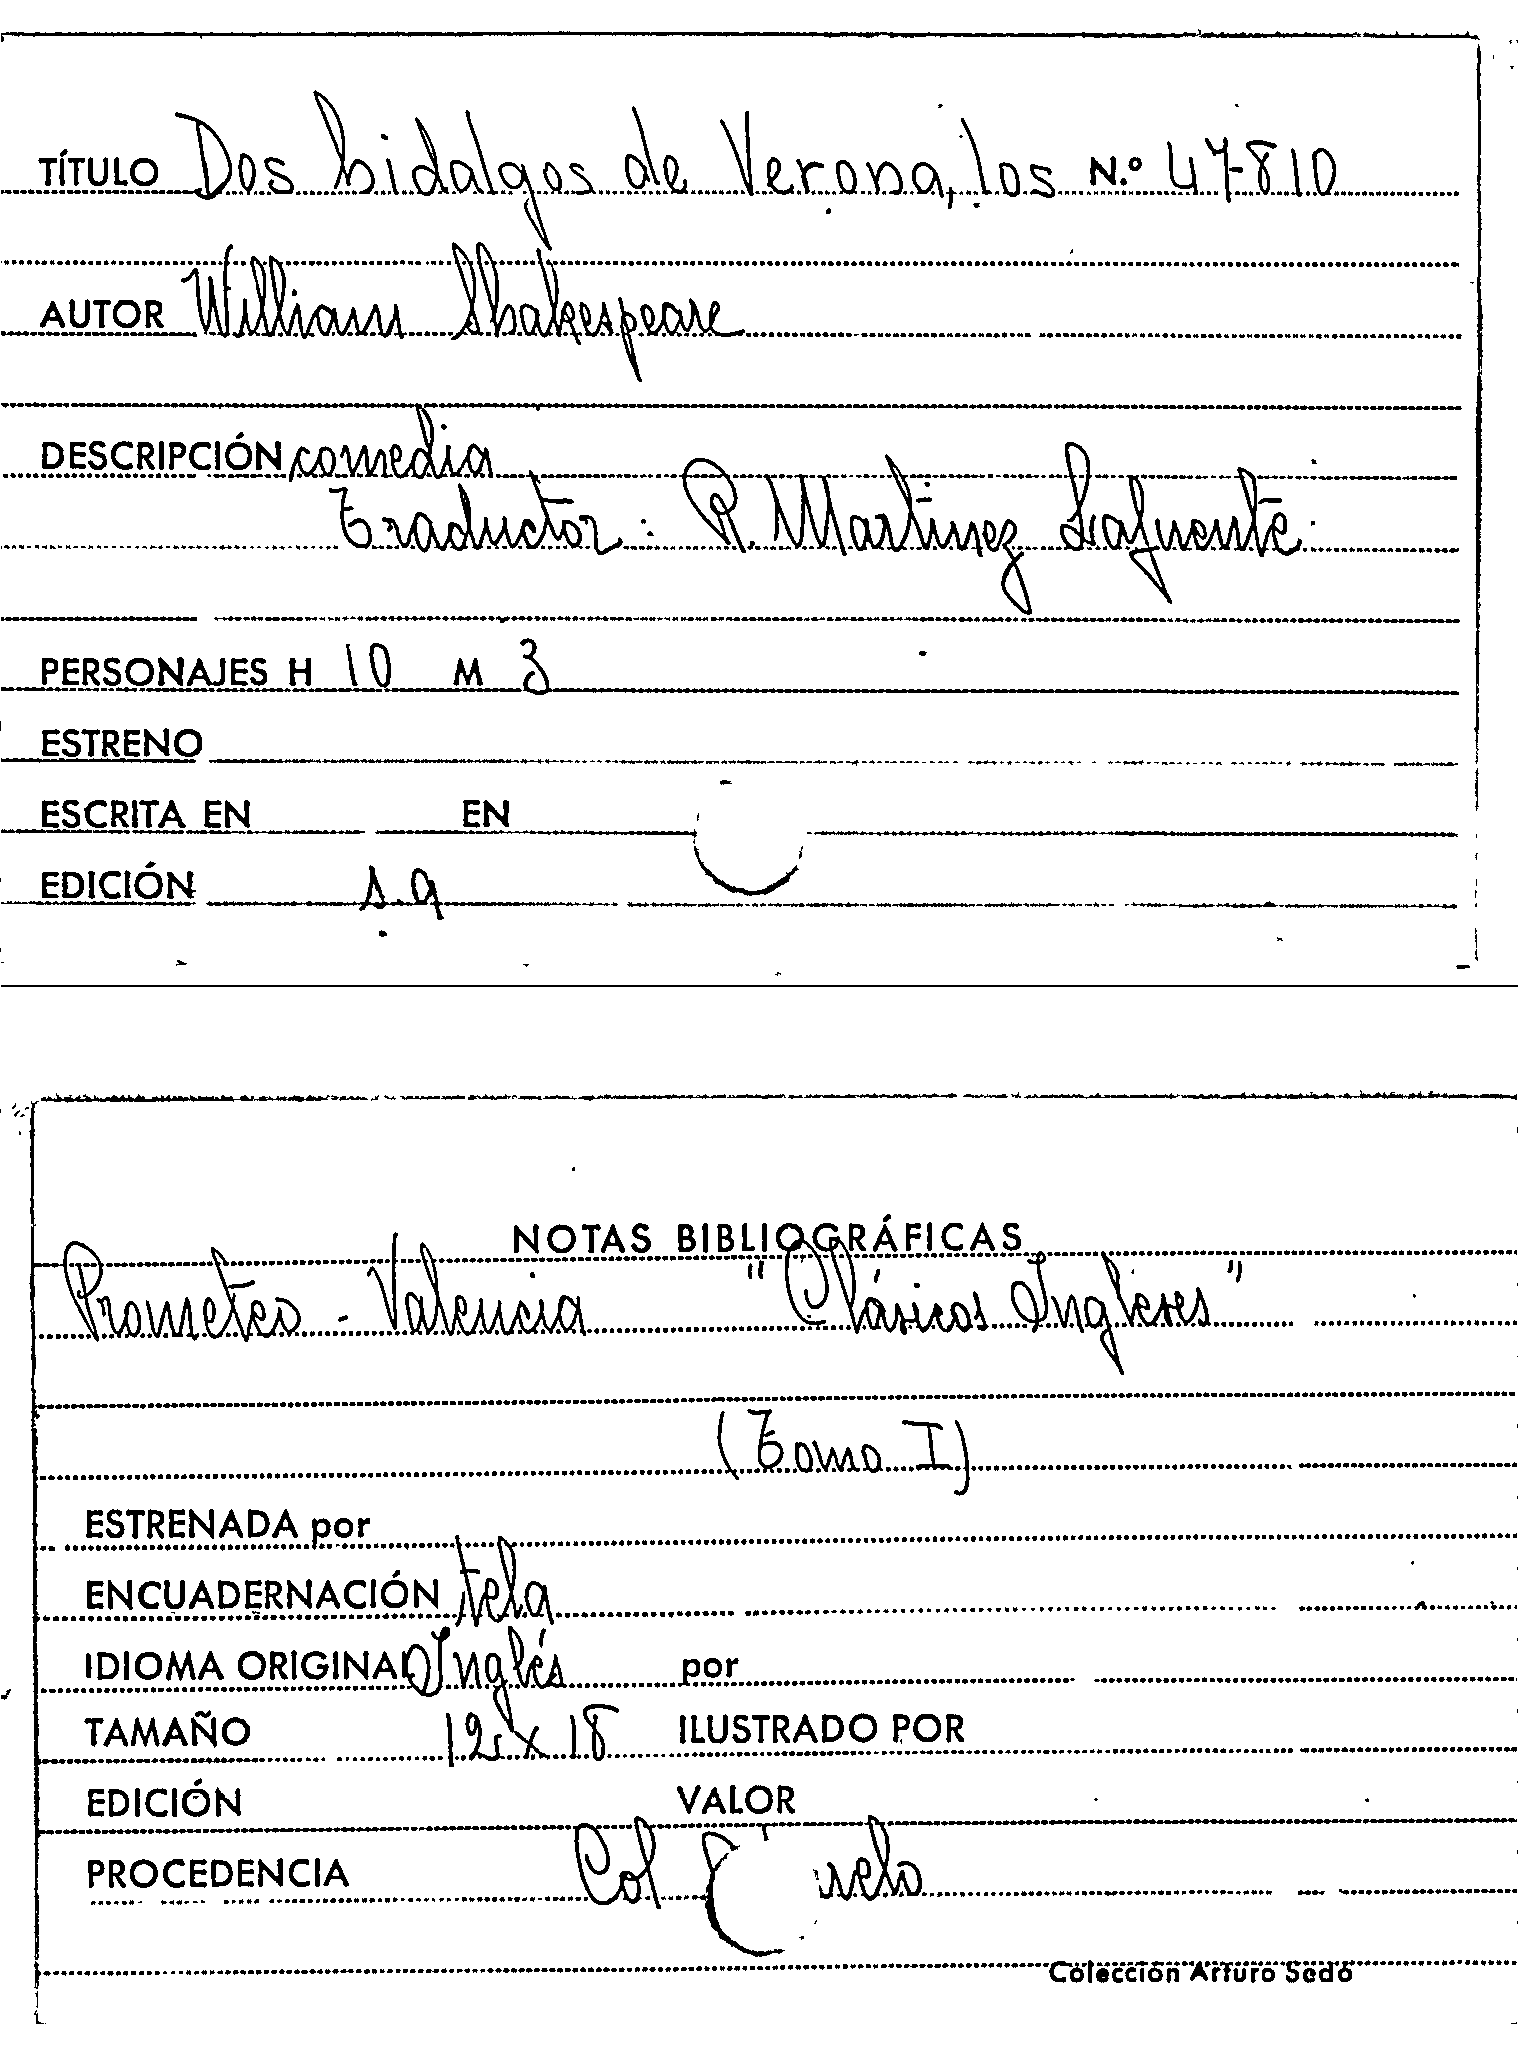 TÍTULO Dos hidalgos de Verona, los N.º 47-810
AUTOR William Shakespeare
DESCRIPCIÓN comedia
Traductor: R. Martinez Lafuente.
PERSONAJES H 10 M 3
ESTRENO
ESCRITA EN EN
EDICIÓN s.a
NOTAS BIBLIOGRÁFICAS
Prometeo - Valencia "Clásicos Ingleses"
(Tomo I)
ESTRENADA por
ENCUADERNACIÓN tela
IDIOMA ORIGINAL Inglés por
TAMAÑO 12 x 18 ILUSTRADO POR
EDICIÓN VALOR
PROCEDENCIA Col
Colección Arturo Sedó